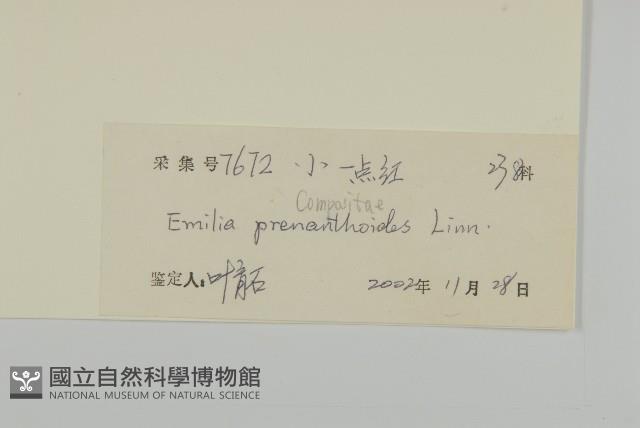 采集号 7672 小一点红 238科
Compositae
Emilia prenanthoides Linn.
鉴定人: 叶育石 2002年 11月 28日
國立自然科學博物館
NATIONAL MUSEUM OF NATURAL SCIENCE